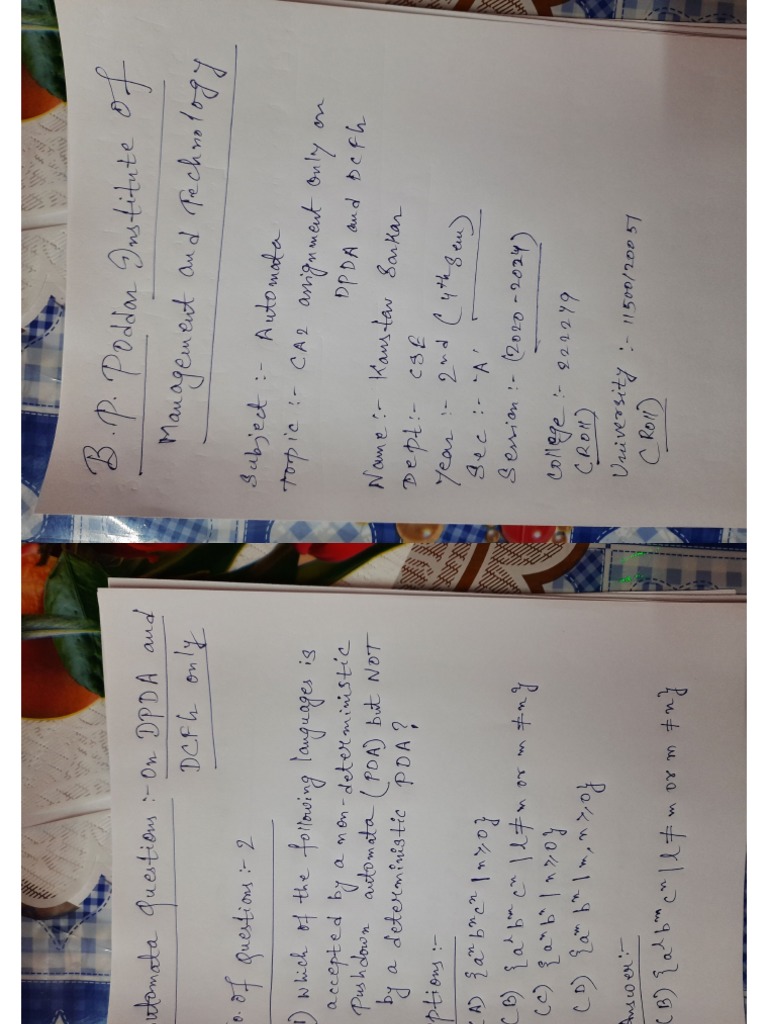 B.P. Poddar Institute of
Management and Technology
Subject :- Automata
Topic :- CA2 assignment only on
DPDA and DCFL
Name :- Kaustav Sarkar
Dept :- CSE
Year :- 2nd (4th Sem)
Sec :- 'A'
Session :- (2020-2024)
College :- 222249
(Roll)
University :- 11500120051
(Roll)
utomata Questions :- On DPDA and
DCFL only
o. of Questions :- 2
1) Which of the following languages is
accepted by a non-deterministic
Pushdown automata (PDA) but NOT
by a deterministic PDA?
ptions :-
(A) {aⁿbⁿcⁿ | n≥0}
(B) {aˡbᵐcⁿ | l≠m or m≠n}
(C) {aⁿbⁿ | n≥0}
(D) {aᵐbⁿ | m,n≥0}
Answer :-
(B) {aˡbᵐcⁿ | l≠m or m≠n}